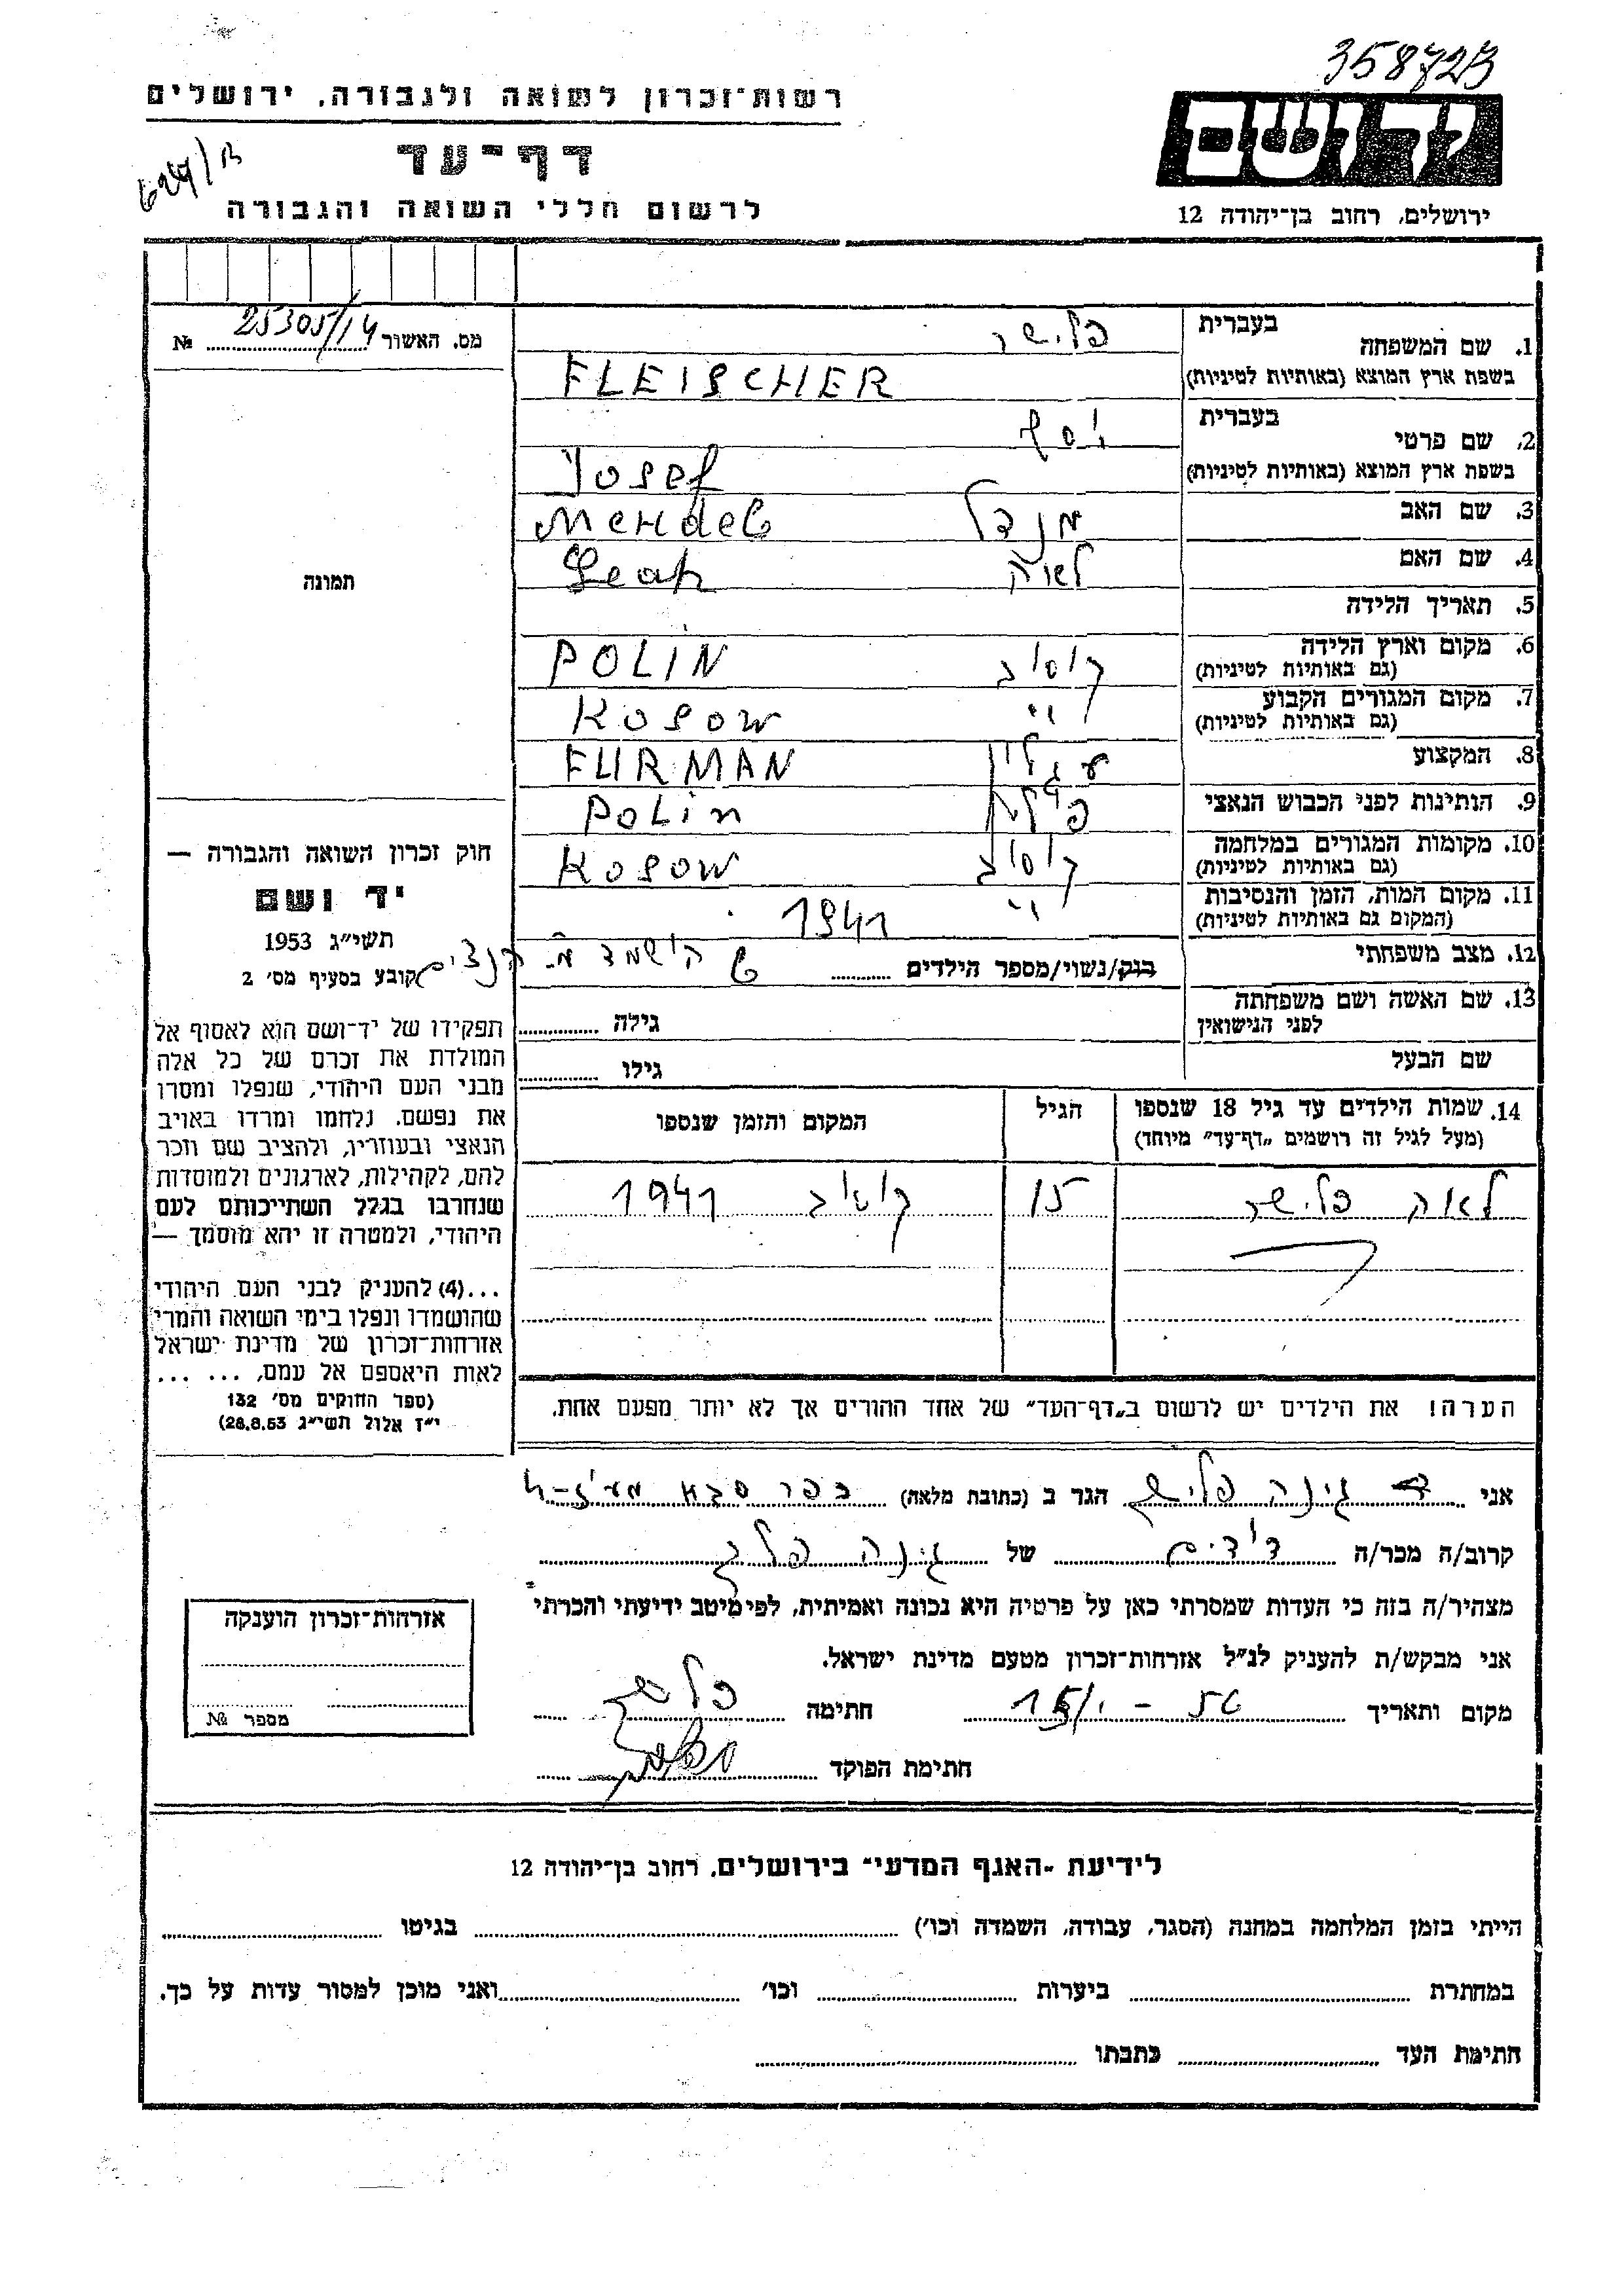 358723
רשות־זכרון לשואה ולגבורה, ירושלים
דף־עד
לרשום חללי השואה והגבורה
יד ושם
ירושלים, רחוב בן־יהודה 12
מס. האשור 25305/14 №
תמונה
1. שם המשפחה
בעברית פלישר
בשפת ארץ המוצא (באותיות לטיניות) FLEISCHER
2. שם פרטי
בעברית יוסף
בשפת ארץ המוצא (באותיות לטיניות) Yosef
3. שם האב מנדל Mendel
4. שם האם לאה Leah
5. תאריך הלידה
6. מקום וארץ הלידה קוסוב POLIN
(גם באותיות לטיניות)
7. מקום המגורים הקבוע " Kosow
(גם באותיות לטיניות)
8. המקצוע עגלון FURMAN
9. הנתינות לפני הכבוש הנאצי Polin
10. מקומות המגורים במלחמה קוסוב Kosow
(גם באותיות לטיניות)
11. מקום המות, הזמן והנסיבות " 1941
(המקום גם באותיות לטיניות)
12. מצב משפחתי רווק/נשוי/מספר הילדים
הושמד הנצים
13. שם האשה ושם משפחתה גילה
לפני הנישואין
שם הבעל גילו
14. שמות הילדים עד גיל 18 שנספו הגיל המקום והזמן שנספו
(מעל לגיל זה רושמים „דף־עד״ מיוחד)
לאה פלישר 15 קוסוב 1941
הערה! את הילדים יש לרשום ב„דף־העד״ של אחד ההורים אך לא יותר מפעם אחת.
חוק זכרון השואה והגבורה —
יד ושם
תשי״ג 1953
קובע בסעיף מס׳ 2
תפקידו של יד־ושם הוא לאסוף אל
המולדת את זכרם של כל אלה
מבני העם היהודי, שנפלו ומסרו
את נפשם, נלחמו ומרדו באויב
הנאצי ובעוזריו, ולהציב שם וזכר
להם, לקהילות, לארגונים ולמוסדות
שנחרבו בגלל השתייכותם לעם
היהודי, ולמטרה זו יהא מוסמך —
...(4) להעניק לבני העם היהודי
שהושמדו ונפלו בימי השואה והמרי
אזרחות־זכרון של מדינת ישראל
לאות היאספם אל עמם, ... ...
(ספר החוקים מס׳ 132
י״ז אלול תשי״ג 28.8.53)
אני גינה פליש הגר ב (כתובת מלאה) כפר סבא
קרוב/ה מכר/ה דודים של גינה
מצהיר/ה בזה כי העדות שמסרתי כאן על פרטיה היא נכונה ואמיתית, לפי מיטב ידיעתי והכרתי
אני מבקש/ת להעניק לנ״ל אזרחות־זכרון מטעם מדינת ישראל.
מקום ותאריך 56 - 15/1 חתימה
חתימת הפוקד
אזרחות־זכרון הוענקה
מספר №
לידיעת ״האגף המדעי״ בירושלים, רחוב בן־יהודה 12
הייתי בזמן המלחמה במחנה (הסגר, עבודה, השמדה וכו׳) בגיטו
במחתרת ביערות וכו׳ ואני מוכן למסור עדות על כך.
חתימת העד כתבתו